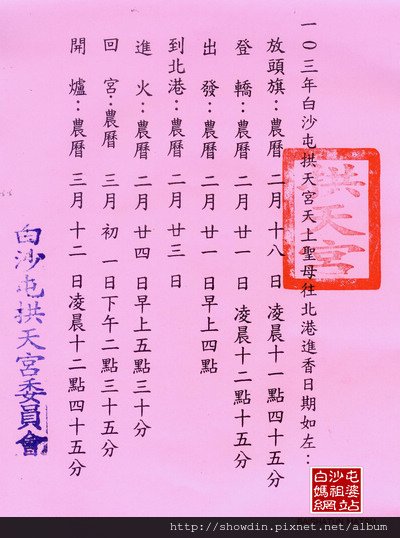 一０三年白沙屯拱天宮天上聖母往北港進香日期如左：
放頭旗：農曆 二月 十八 日 凌晨十一點四十五分
登 轎：農曆 二月 廿一 日 凌晨十二點十五分
出 發：農曆 二月 廿一 日早上四點
到北港：農曆 二月 廿三 日
進 火：農曆 二月 廿四 日早上五點三十分
回 宮：農曆 三月 初 一 日下午二點三十五分
開 爐：農曆 三月 十二 日凌晨十二點四十五分
拱天宮
白沙屯拱天宮委員會
白沙屯
媽祖婆
網站
http://showdin.pixnet.net/album